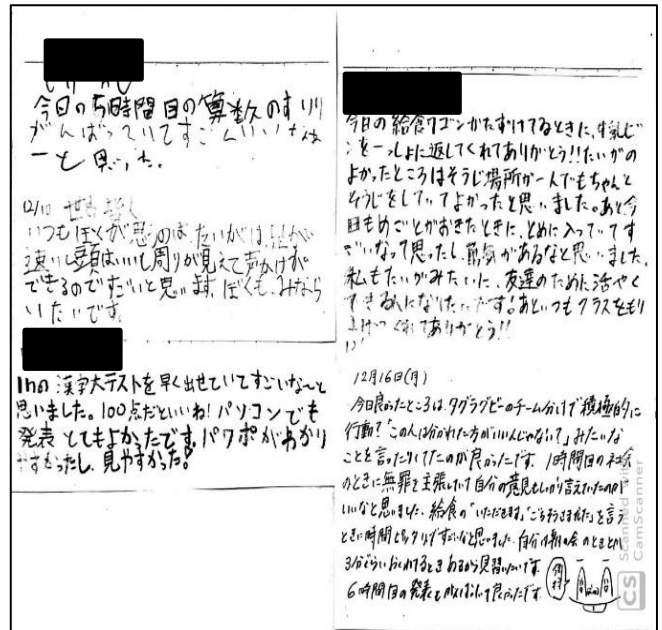 今日の5時間目の算数のすいり
がんばっていてすごくいいなぁ
ーと思った。
12/10
いつもぼくが思うのは、たいがは、足が
速いし頭はいいし周りが見えて声かけが
できるのですごいと思います。ぼくも、みなら
いたいです。
1hの漢字大テストを早く出せていてすごいな〜と
思いました。100点だといいね!パソコンでも
発表とてもよかったです。パワポがわかり
やすかったし、見やすかった!
今日の給食ワゴンかたずけてるときに、牛乳ビ
ンを一っしょに返してくれてありがとう!!たいがの
よかったところはそうじ場所が一人でもちゃんと
そうじをしていてよかったと思いました。あと今
日もめごとがおきたときに、とめに入っていてす
ごいなって思ったし、勇気があるなと思いました。
私もたいがみたいに、友達のために活やく
できる人になりたいです!あといつもクラスをもり
上げてくれてありがとう!!
12月16日(月)
今日良かったところは、タグラグビーのチーム分けで積極的に
行動て「この人は分かれた方がいいんじゃない?」みたいな
ことを言ったりしてたのが良かったです。1時間目の社会
のときに無罪を主張していて自分の意見もしっかり言えていたのが
いいなと思いました。給食の「いただきます」「ごちそうさまでした」を言う
ときに時間ピッタリですごいなと思いました。自分は朝の会のときとか
3分ぐらいおくれてるときあるから見習いたいです。
6時間目の発表も良かったです。
Scanned with
CS CamScanner